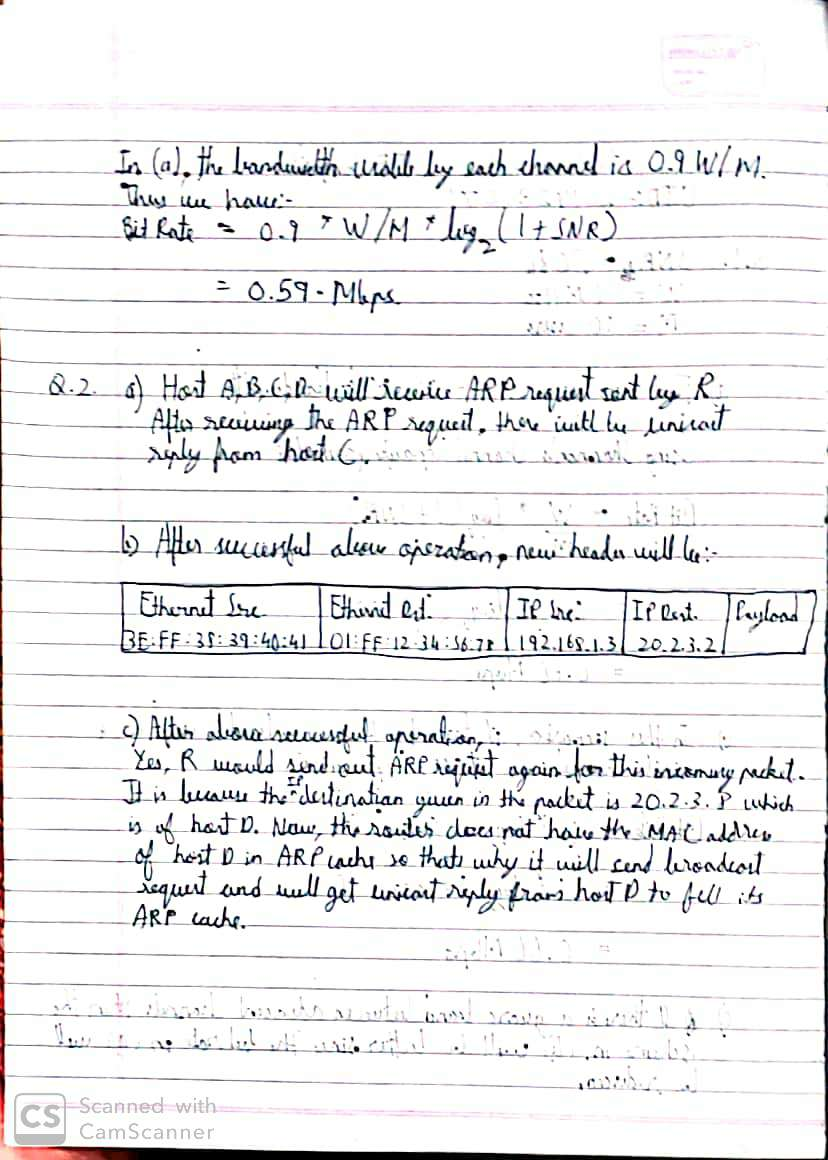 In (a), the bandwidth usable by each channel is 0.9 W/M.
Thus we have:-
Bit Rate = 0.9 * W/M * log2 (1 + SNR)
= 0.59 - Mbps.
Q.2. a) Host A, B, C, D will receive ARP request sent by R.
After receiving the ARP request, there will be unicast
reply from host C.
b) After successful above operation, new header will be:-
Ethernet Src Ethernet Dst. IP Src. IP Dest. Payload
3E:FF:38:39:40:41 01:FF:12:34:56:78 192.168.1.3 20.2.3.2
c) After above successful operation,
Yes, R would send out ARP request again for this incoming packet.
It is because the IP destination given in the packet is 20.2.3. which
is of host D. Now, the router does not have the MAC address
of host D in ARP cache so thats why it will send broadcast
request and will get unicast reply from host D to fell its
ARP cache.
CS Scanned with
CamScanner